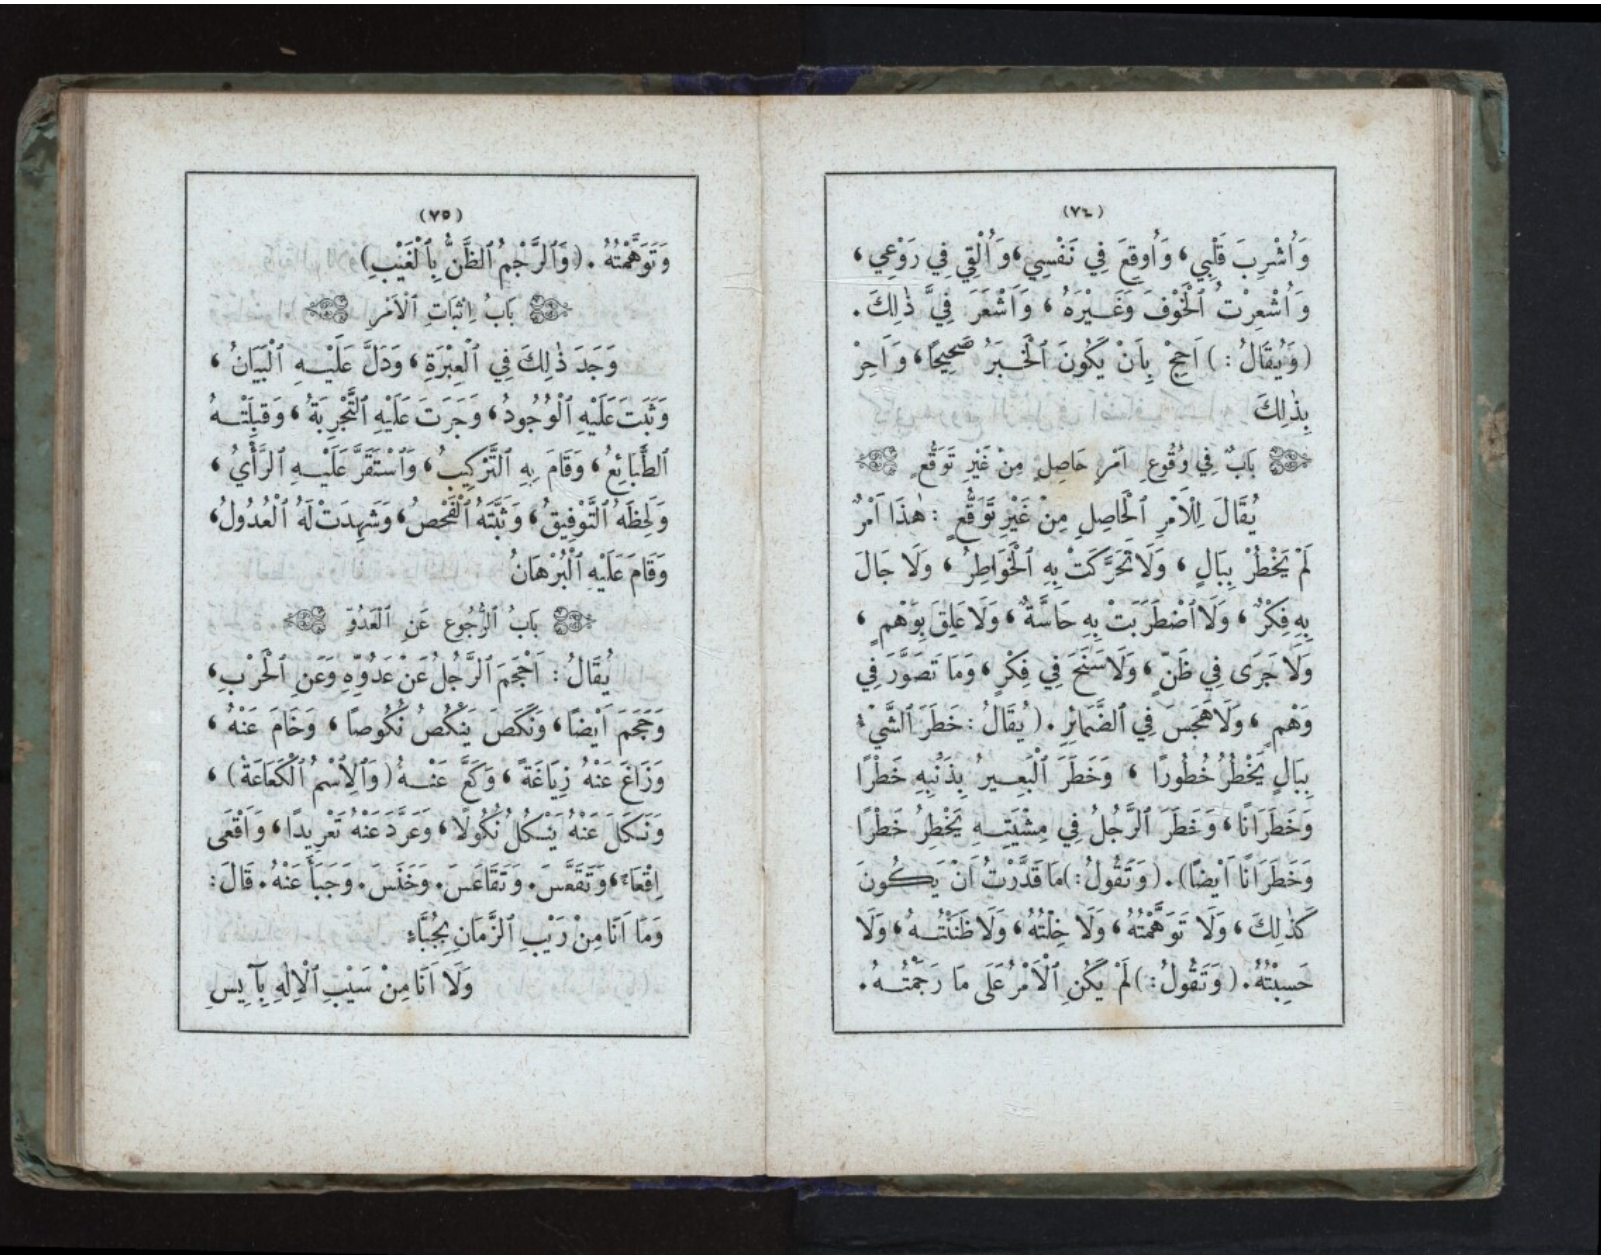 (٧٤)
وَأُشْرِبَ قَلْبِي، وَأُوقِعَ فِي نَفْسِي، وَأُلْقِيَ فِي رَوْعِي،
وَأُشْعِرْتُ ٱلْخَوْفَ وَغَيْرَهُ، وَأَشْعَرَ فِيَّ ذٰلِكَ.
(وَيُقَالُ:) أَحِجْ بِأَنْ يَكُونَ ٱلْخَبَرُ صَحِيحًا، وَأَحِرْ
بِذٰلِكَ
بَابٌ فِي وُقُوعِ أَمْرٍ حَاصِلٍ مِنْ غَيْرِ تَوَقُّعٍ
يُقَالُ لِلْأَمْرِ ٱلْحَاصِلِ مِنْ غَيْرِ تَوَقُّعٍ: هٰذَا أَمْرٌ
لَمْ يَخْطُرْ بِبَالٍ، وَلَا تَحَرَّكَتْ بِهِ ٱلْخَوَاطِرُ، وَلَا جَالَ
بِهِ فِكْرٌ، وَلَا ٱضْطَرَبَتْ بِهِ حَاسَّةٌ، وَلَا عَلِقَ بِوَهْمٍ،
وَلَا جَرَى فِي ظَنٍّ، وَلَا سَنَحَ فِي فِكْرٍ، وَمَا تَصَوَّرَ فِي
وَهْمٍ، وَلَا هَجَسَ فِي ٱلضَّمَائِرِ. (يُقَالُ: خَطَرَ ٱلشَّيْءُ
بِبَالٍ يَخْطُرُ خُطُورًا، وَخَطَرَ ٱلْبَعِيرُ بِذَنَبِهِ خَطْرًا
وَخَطَرَانًا، وَخَطَرَ ٱلرَّجُلُ فِي مِشْيَتِهِ يَخْطِرُ خَطْرًا
وَخَطَرَانًا أَيْضًا). (وَتَقُولُ:) مَا قَدَّرْتُ أَنْ يَكُونَ
كَذٰلِكَ، وَلَا تَوَهَّمْتُهُ، وَلَا خِلْتُهُ، وَلَا ظَنَنْتُهُ، وَلَا
حَسِبْتُهُ. (وَتَقُولُ:) لَمْ يَكُنِ ٱلْأَمْرُ عَلَى مَا رَجَمْتُهُ.
(٧٥)
وَتَوَهَّمْتُهُ. (وَٱلرَّجْمُ ٱلظَّنُّ بِٱلْغَيْبِ)
بَابُ إِثْبَاتِ ٱلْأَمْرِ
وَجَدَ ذٰلِكَ فِي ٱلْعِبْرَةِ، وَدَلَّ عَلَيْهِ ٱلْبَيَانُ،
وَثَبَتَ عَلَيْهِ ٱلْوُجُودُ، وَجَرَتَ عَلَيْهِ ٱلتَّجْرِبَةُ، وَقَبِلَتْهُ
ٱلطَّبَائِعُ، وَقَامَ بِهِ ٱلتَّرْكِيبُ، وَٱسْتَقَرَّ عَلَيْهِ ٱلرَّأْيُ،
وَلَحِظَهُ ٱلتَّوْفِيقُ، وَثَبَّتَهُ ٱلْفَحْصُ، وَشَهِدَتْ لَهُ ٱلْعُدُولُ،
وَقَامَ عَلَيْهِ ٱلْبُرْهَانُ
بَابُ ٱلرُّجُوعِ عَنِ ٱلْعَدُوِّ
يُقَالُ: أَحْجَمَ ٱلرَّجُلُ عَنْ عَدُوِّهِ وَعَنِ ٱلْحَرْبِ،
وَجَحَمَ أَيْضًا، وَنَكَصَ يَنْكُصُ نُكُوصًا، وَخَامَ عَنْهُ،
وَزَاغَ عَنْهُ زِيَاغَةً، وَكَعَّ عَنْهُ (وَٱلِٱسْمُ ٱلْكَعَاعَةُ)،
وَنَكَلَ عَنْهُ يَنْكُلُ نُكُولًا، وَعَرَّدَ عَنْهُ تَعْرِيدًا، وَأَقْعَى
إِقْعَاءً، وَتَقَعَّسَ. وَتَقَاعَسَ. وَخَنَسَ. وَجَبَأَ عَنْهُ. قَالَ:
وَمَا أَنَا مِنْ رَيْبِ ٱلزَّمَانِ بِجُبَّاءٍ
وَلَا أَنَا مِنْ سَيْبِ ٱلْإِلٰهِ بِآيِسِ